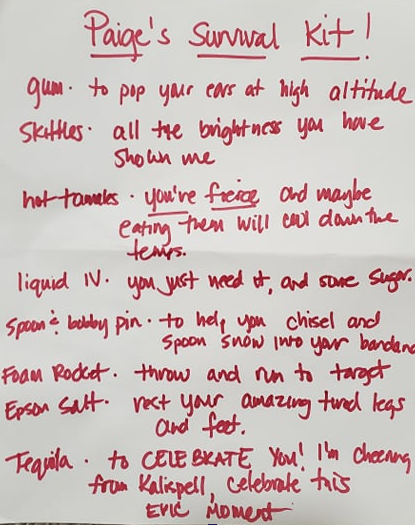 Paige's Survival Kit!
gum · to pop your ears at high altitude
Skittles · all the brightness you have
shown me
hot tamales · you're fierce and maybe
eating them will cool down the
temps.
liquid IV · you just need it, and some sugar.
Spoon & bobby pin · to help you chisel and
spoon snow into your bandana
Foam Rocket · throw and run to target
Epson Salt · rest your amazing tired legs
and feet.
Tequila · to CELEBRATE You! I'm cheering
from Kalispell, celebrate this
EPIC MOMENT